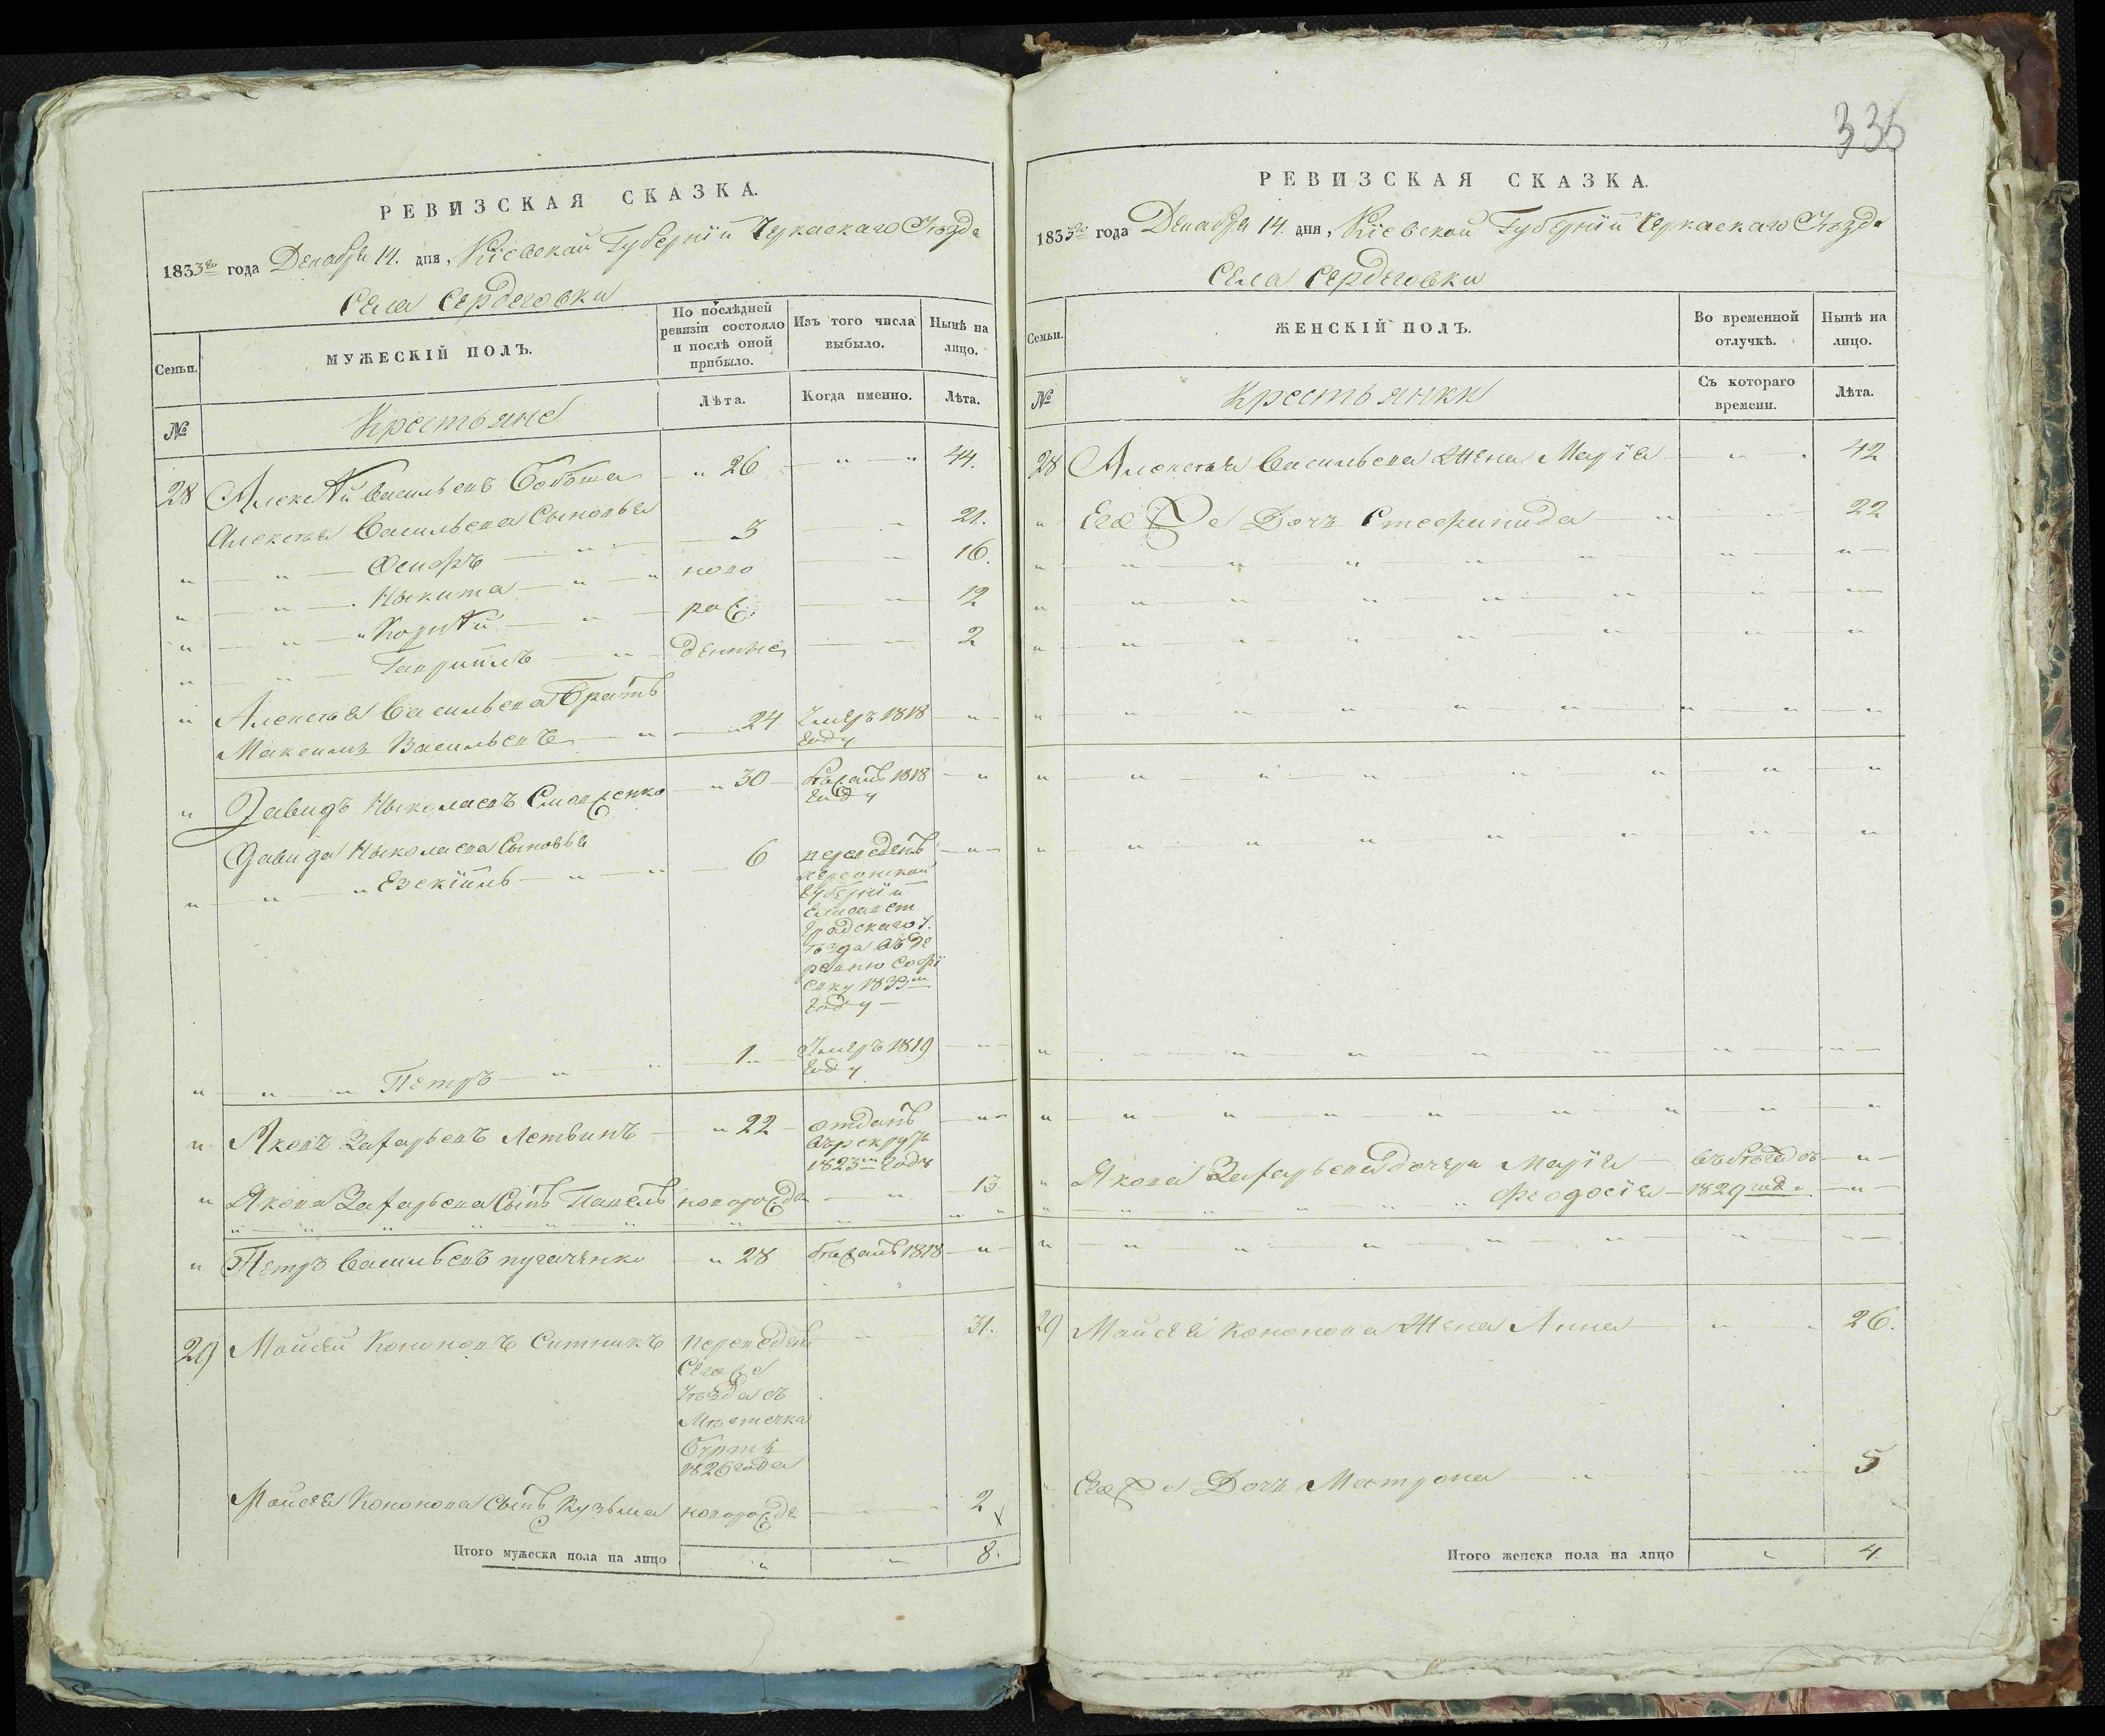 336
РЕВИЗСКАЯ СКАЗКА.
1833го года Декабря 14. дня, Кіевской Губерніи Черкаскаго Уѣзда
Села Сердеговки
Семьи.
МУЖЕСКІЙ ПОЛЪ.
По послѣдней ревизіи состояло и послѣ оной прибыло.
Изъ того числа выбыло.
Нынѣ на лицо.
№
Крестьяне
Лѣта.
Когда именно.
Лѣта.
28 Алексѣй Васильевъ " 26 " " 44.
Алексѣя Васильева Сыновья
" " Осипъ " 3 " 21.
" " Ныкита " " ново " 16.
" " " " рож: " 12
" " Гавріилъ " денные 2
" Алексѣя Васильева Братъ
Максимъ Васильевъ " 24 Умеръ 1818 году "
" Давидъ Ныколаевъ " 30 Бѣжалъ 1818 году "
Давида Ныколаева Сыновья
" " " Езекіиль " " 6 переведенъ Херсонской губерніи Елисавет градскаго у: ѣзда въ де ревню Софі евку 1833м году "
" " " Петръ " " 1 Умеръ 1819 году "
" Яковъ Захарьевъ Летвинъ " 22 отданъ въ рекруты 1823м годѣ "
" Якова Захарьева Сынъ Павелъ новорожде " 13
" Петръ Васильевъ Пугаченко " 28 бѣжалъ 1818 "
29 Мойсей Кононовъ Ситникъ переведенъ Сего же Уѣзда съ Мѣстечка 1826 года " 31.
Мойсея Кононова Сынъ Кузьма новорожде " 2
Итого мужеска пола на лицо " " 8.
РЕВИЗСКАЯ СКАЗКА.
1833го года Декабря 14. дня, Кіевской Губерніи Черкаскаго Уѣзда
Села Сердеговки
Семьи.
ЖЕНСКІЙ ПОЛЪ.
Во временной отлучкѣ.
Нынѣ на лицо.
№
Крестьянки
Съ котораго времени.
Лѣта.
28 Алексѣя Васильева Жена Марія " 42
" Его же Дочь Стефанида " 22
" Якова Захарьева дочери Марія въ бѣгахъ съ "
" " " " " Феодосія 1829 года "
29 Мойсея Кононова Жена Анна " 26.
Его же Дочь Матрона " " 5
Итого женска пола на лицо " 4.